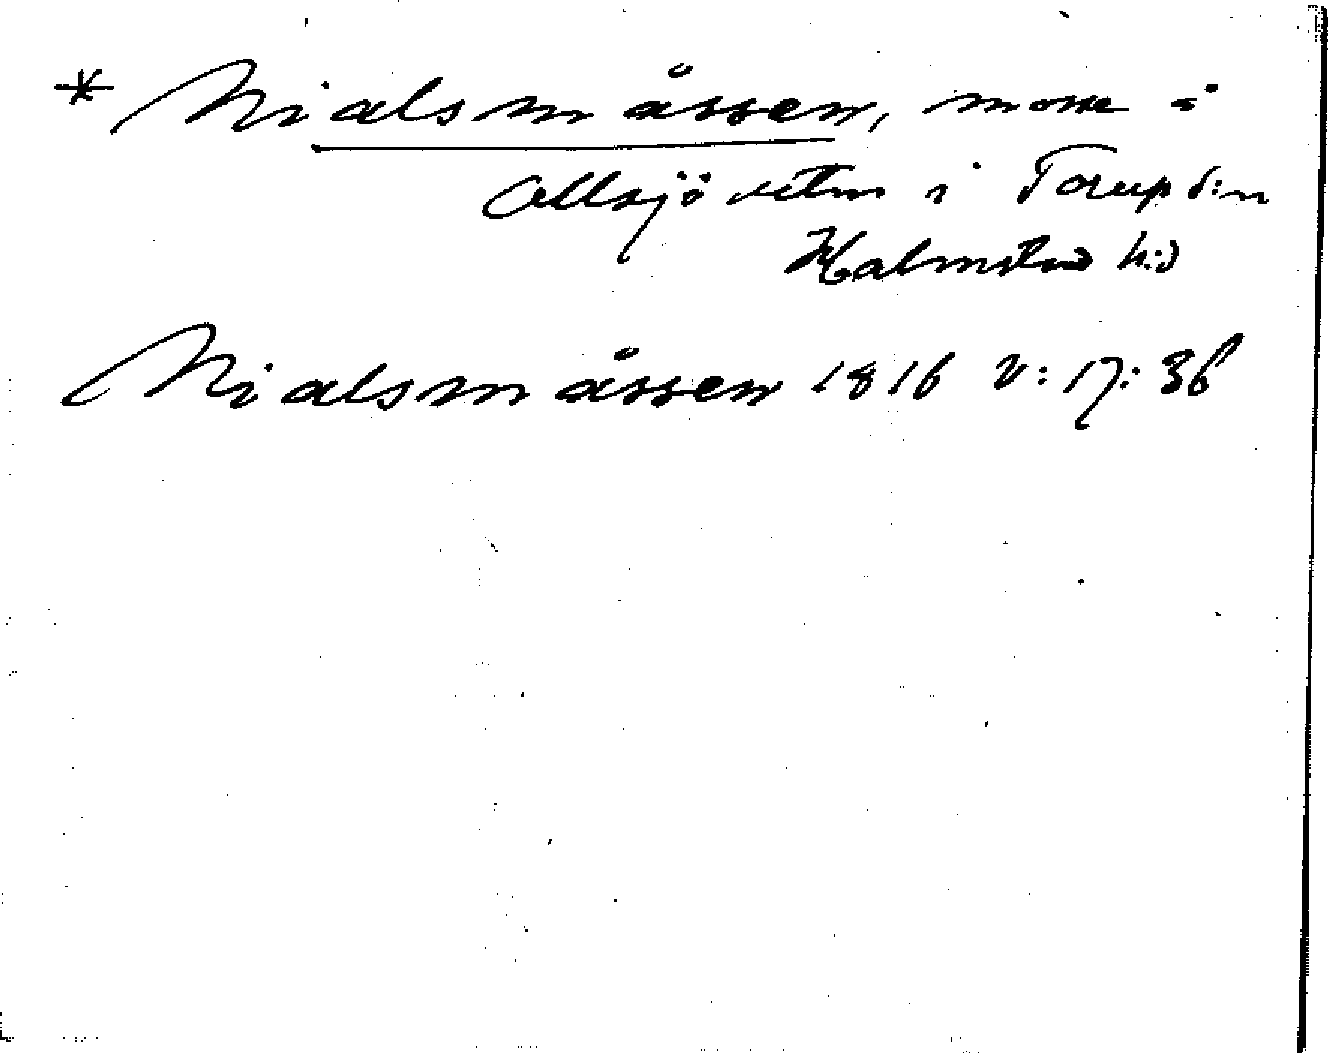 * Nialsmåssen, mosse i
Allsjö utm i Torup s:n
Halmstad h:d
Nialsmåssen 1816 V: 17: 36